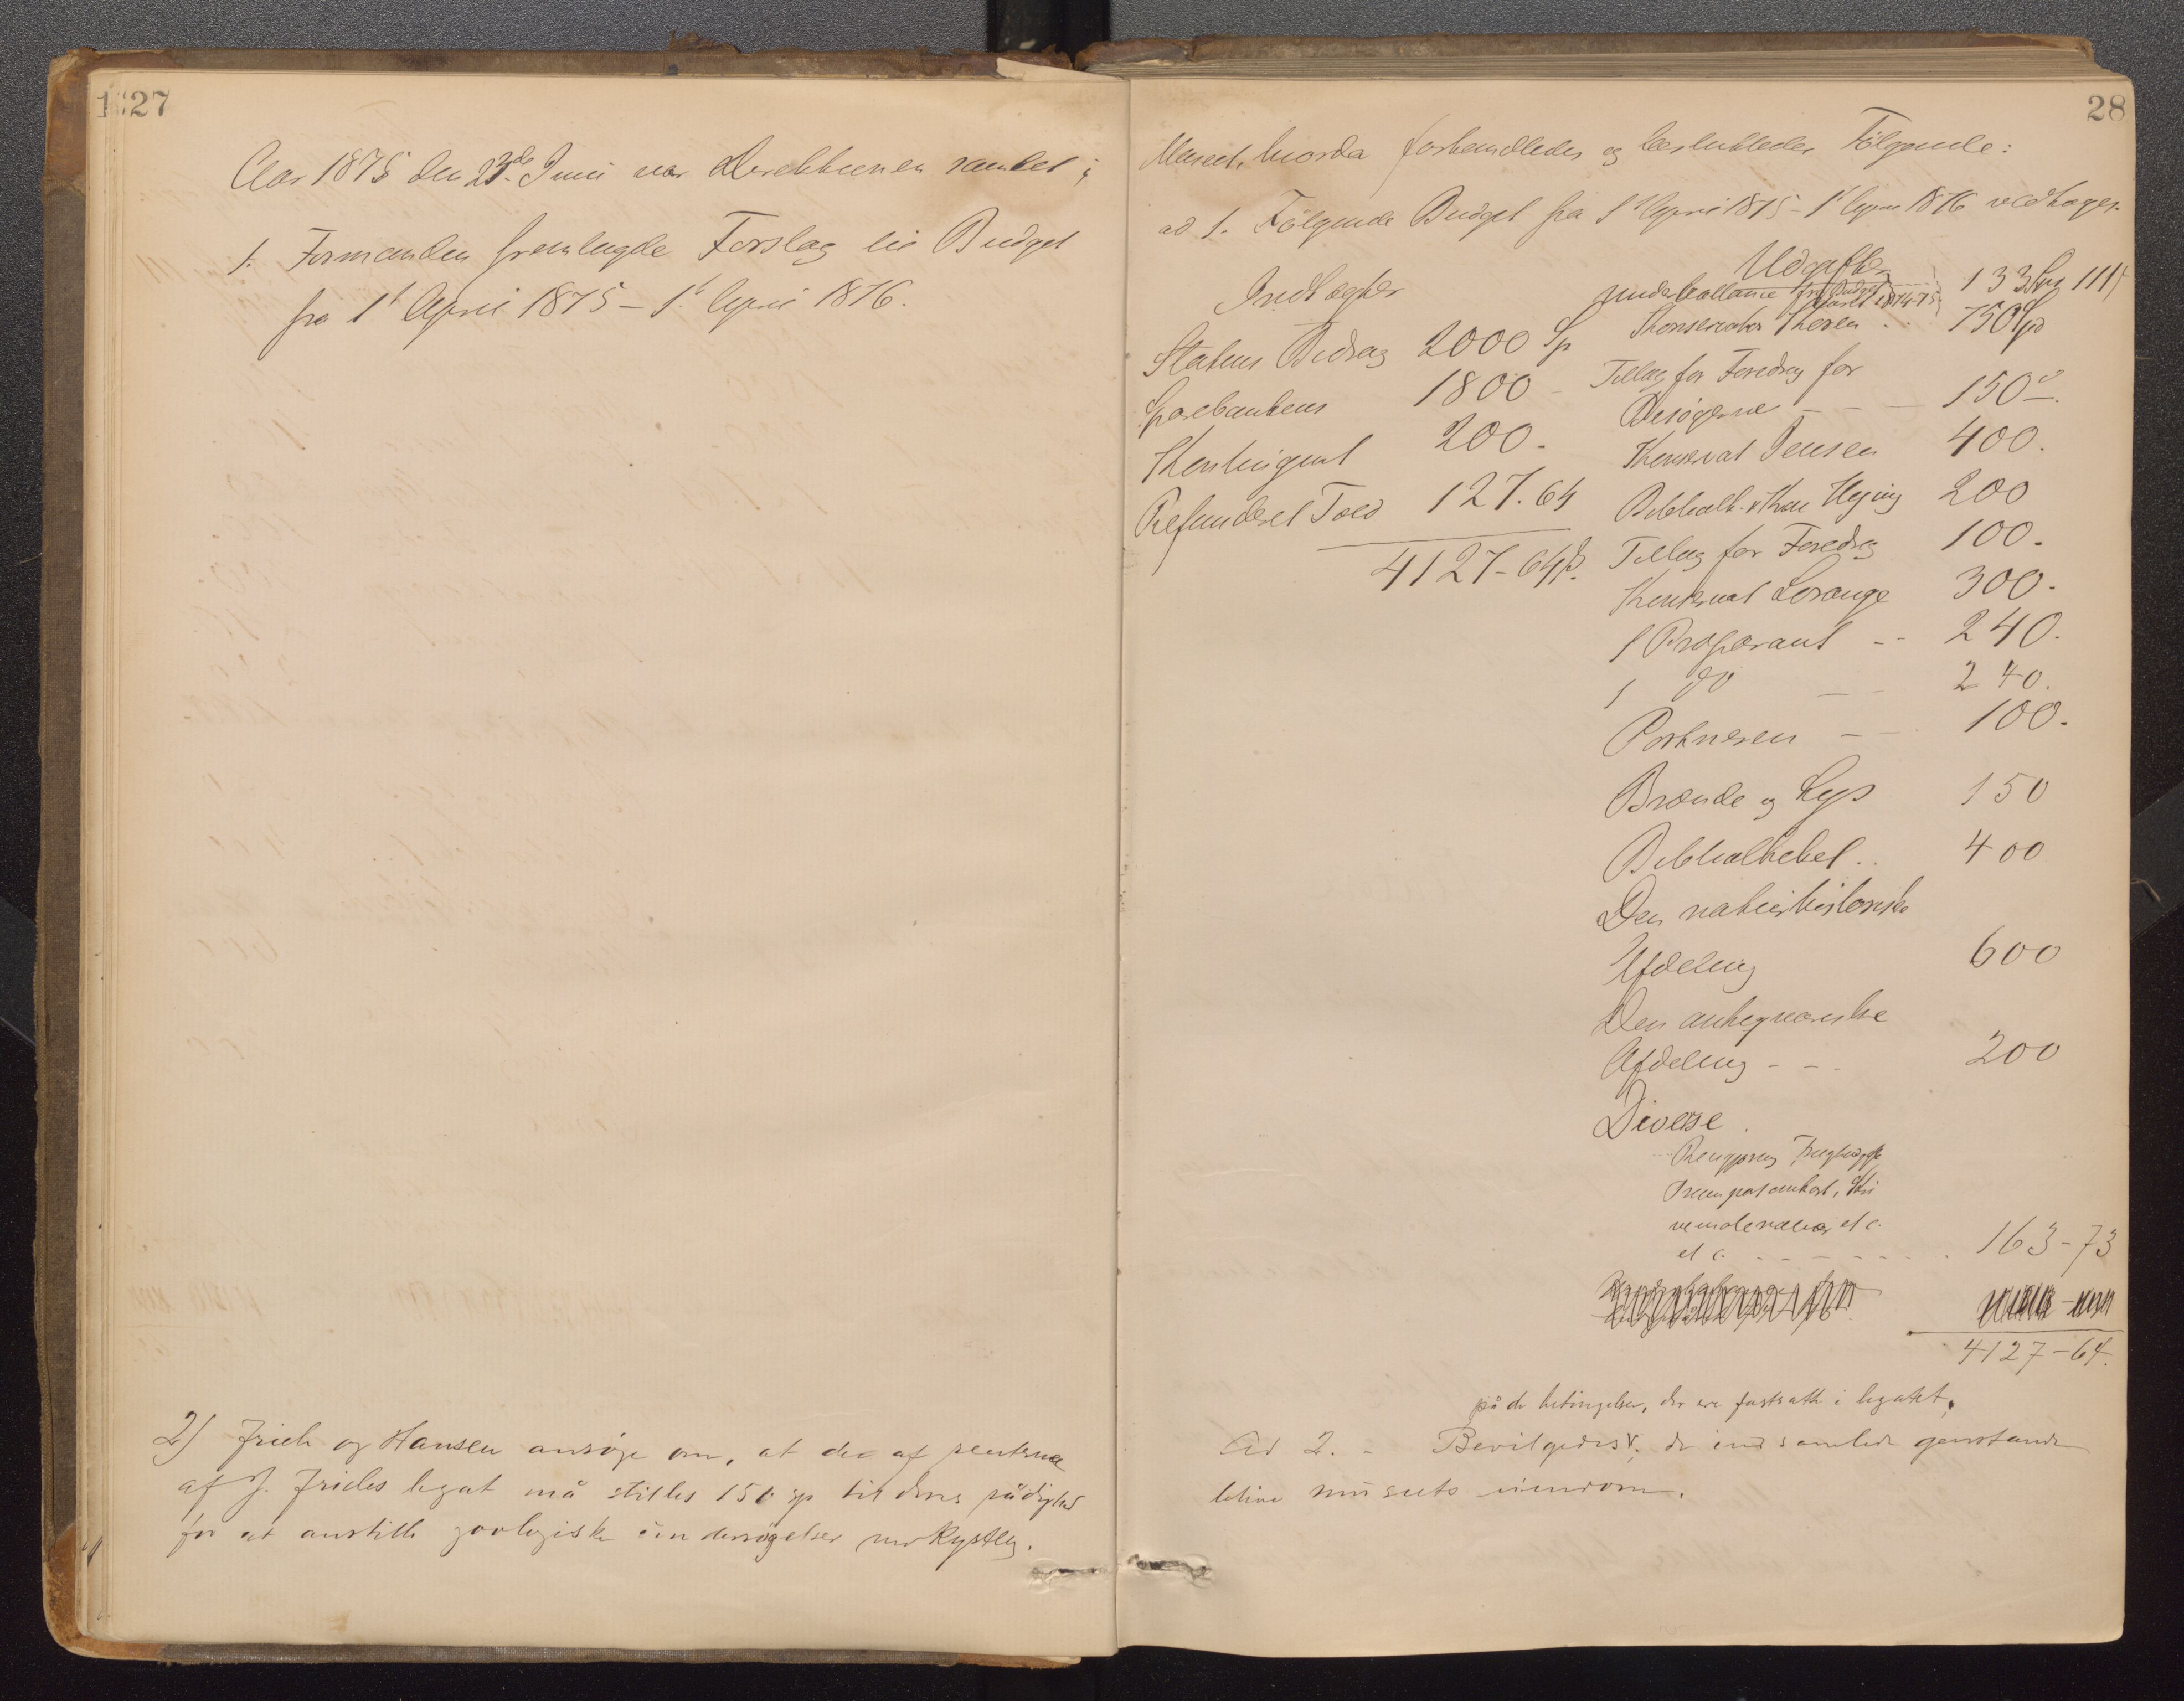 127
Aar 1875 den 23de Juni var Direktionen samlet i
1. Formanden fremlagde Forslag til Budget
fra 1t April 1875 – 1t April 1876.
2) Friele og Hansen ansøge om, at der af renterne
af J. Frieles legat må stilles 150 sp til deres rådighed
for at anstille zoologiske undersøgelser ved Kysten.
28
Museet, hvorda forhandledes og besluttedes Følgende:
ad 1. Følgende Budget fra 1t April 1875 – 1t April 1876 vedtoges.
Indtægter
Statens Bidrag 2000 Sp
Sparebankens 1800 –
Kontingent 200 –
Refunderet Told 127. 64
4127 – 64 β.
Udgifter
Underballance fra Budget
året 1874-75 133 Sp 111 β
Konservator Koren .. 750 Sp
Tillæg for Foredrag for
Besøgerne – – – 150 "–.
Konservat Jensen 400.
Bibliothk. 200
Tillæg for Foredrag 100.
Konservat Lorange 300.
1 Præparant – – 240.
1 do – – 240.
Portneren – – 100.
Brænde og Lys 150
Bibliotheket .. 400
Den naturhistoriske
Afdeling 600
Den antiqvariske
Afdeling – – . 200
Diverse .
Rengjøring,
Assurance, Skri
vematerialier et c.
et c. – – – – – – . 163 – 73
4127 – 64.
på de betingelser, der ere fastsatte i legatet.
Ad 2. – Bevilgedes; de indsamlede genstande
blive museets eiendom.